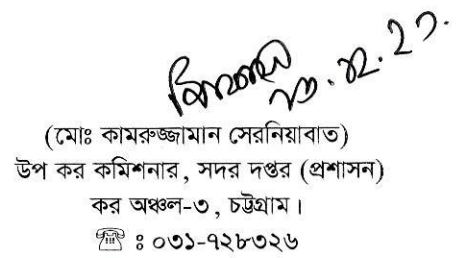 (মোঃ কামরুজ্জামান সেরনিয়াবাত)
উপ কর কমিশনার, সদর দপ্তর (প্রশাসন)
কর অঞ্চল-৩, চট্টগ্রাম।
☎ ঃ ০৩১-৭২৮৩২৬